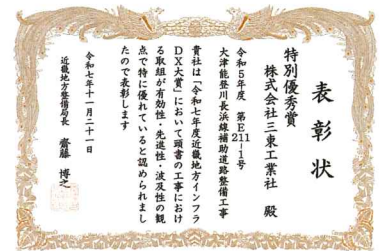 表彰状
特別優秀賞
株式会社三東工業社 殿
令和5年度 第E11-1号
211
大津能登川長浜線補助道路整備工事
貴社は「令和七年度近畿地方インフラ
DX大賞」において頭書の工事におけ
る取組が有効性・先進性・波及性の観
点で特に優れていると認められまし
たので表彰します
令和七年十一月二十一日
近畿地方整備局長 齋藤 博之